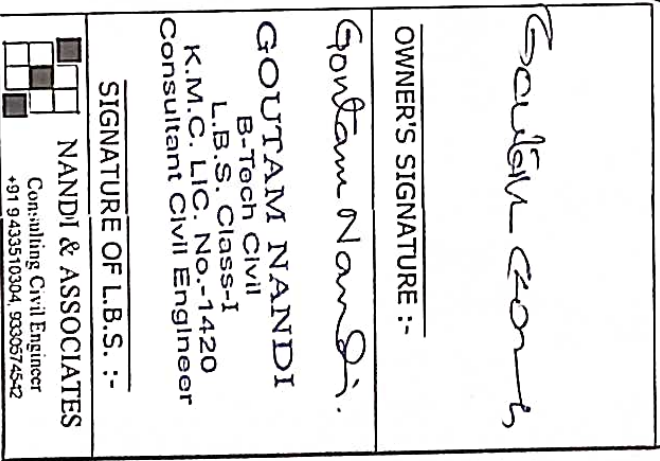 OWNER'S SIGNATURE :-
Goutam Nandi.
GOUTAM NANDI
B-Tech Civil
L.B.S. Class-I
K.M.C. LIC. No.-1420
Consultant Civil Engineer
SIGNATURE OF L.B.S. :-
NANDI & ASSOCIATES
Consulting Civil Engineer
+91 9433510304, 9330674542